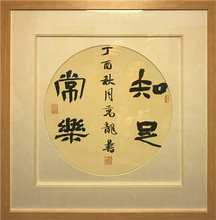 知足
常樂
丁酉秋月
龍書